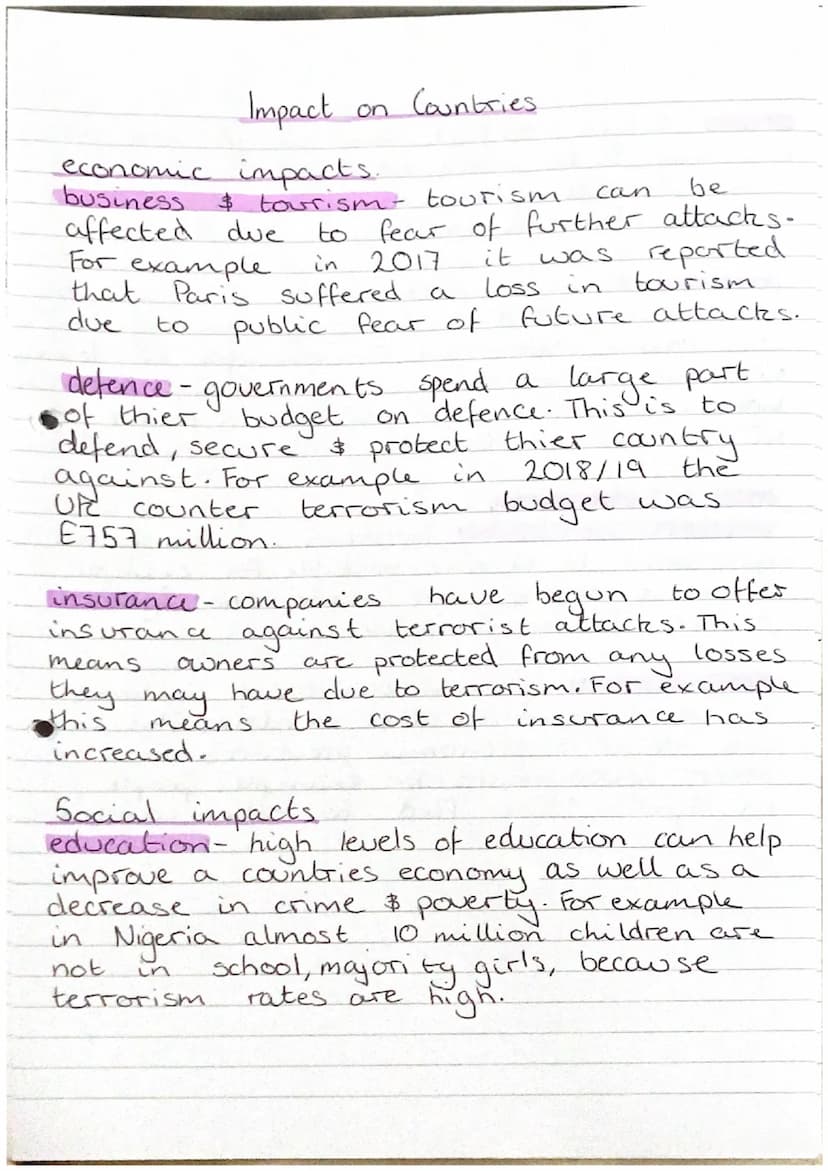 Impact on Countries
economic impacts.
business & tourism - tourism can be
affected due to fear of further attacks.
For example in 2017 it was reported
that Paris suffered a loss in tourism
due to public fear of future attacks.
defence - governments spend a large part
of thier budget on defence. This is to
defend, secure & protect thier country
against. For example in 2018/19 the
UK counter terrorism budget was
£757 million.
insurance - companies have begun to offer
insurance against terrorist attacks. This
means owners are protected from any losses
they may have due to terrorism. For example
this means the cost of insurance has
increased.
Social impacts
education - high levels of education can help
improve a countries economy as well as a
decrease in crime & poverty. For example
in Nigeria almost 10 million children are
not in school, majority girls, because
terrorism rates are high.